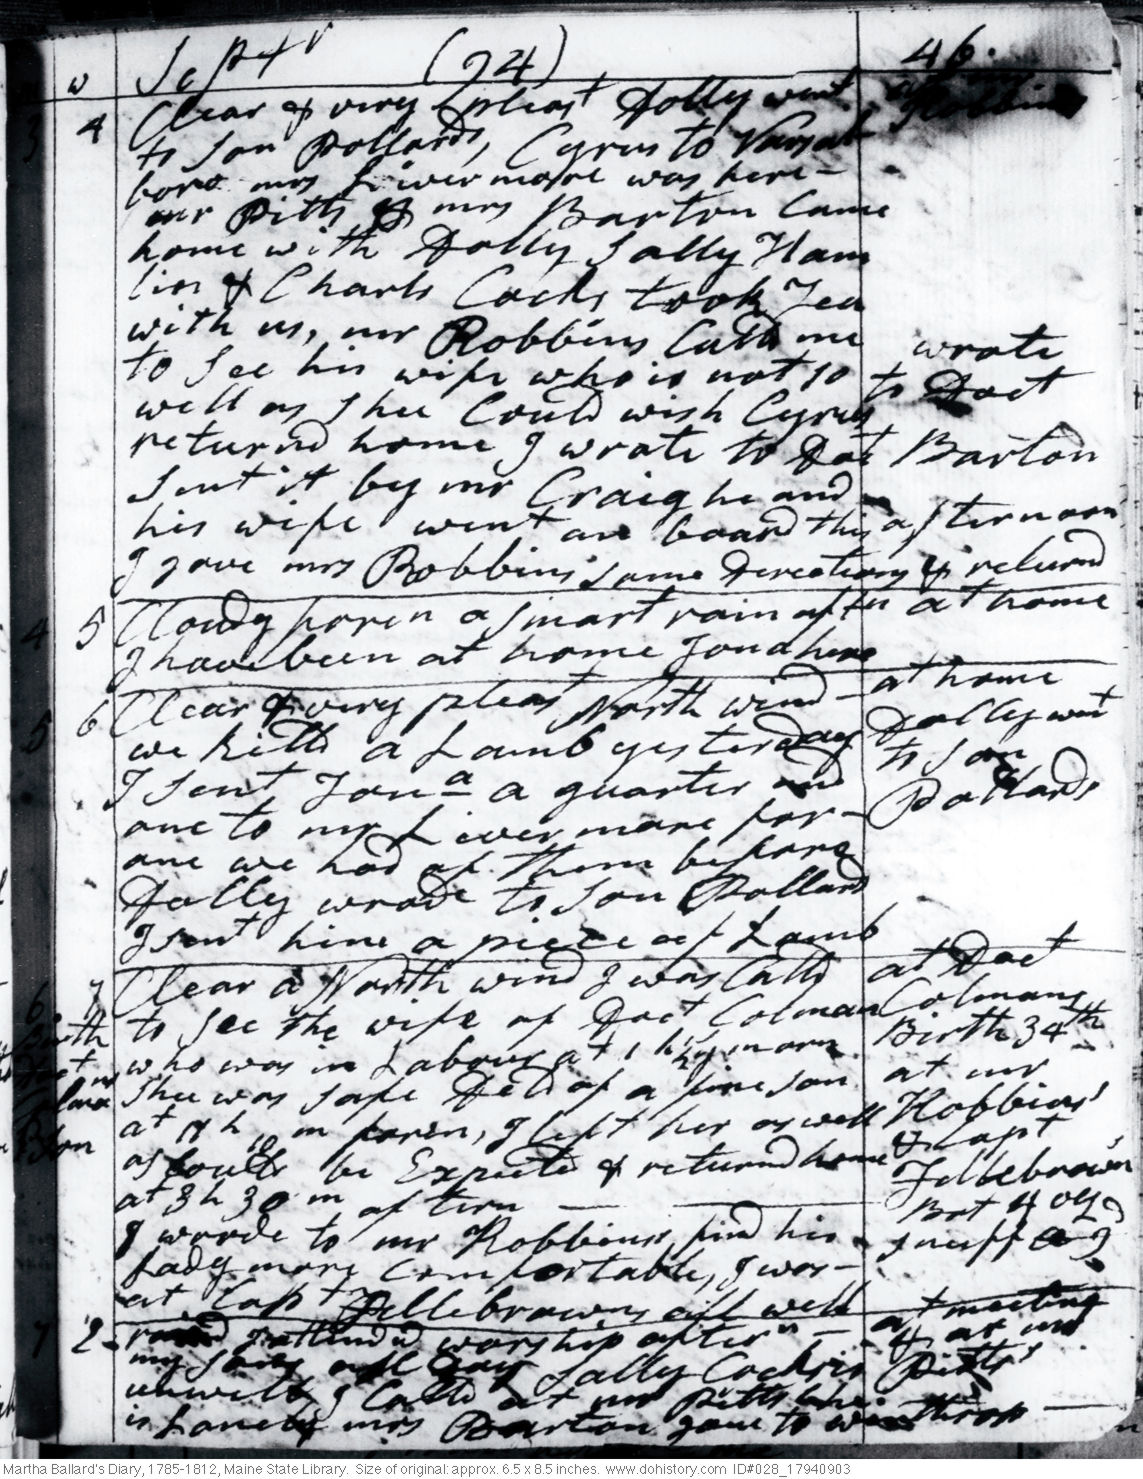 w Sept r (94) 46.
3 4 Clear & very pleast Dolly went at mr Robbins
to Son Pollards, Cyrus to Vassal
boro. mrs Livermore was here –
mr Pitts & mrs Barton Came
home with Dolly Sally Ham
lin & Charls Cocks took Tea
with us, mr Robbins Calld me
to See his wife who is not so
well as shee Could wish Cyrus
returnd home I wrote to Doct
wrote
to Doct
Barton
Sent it by mr Craig he and
his wife went on board this afternoon
I gave mrs Robbins some directions & returnd
4 5 Cloudy foren a smart rain aftn at home
I have been at home Jona here
5 6 Clear & very pleast North wind –
we killd a Lamb yesterday
I sent Jona a quarter and
one to mr Livermore for –
one we had of them before
Dolly wrode to Son Pollard
I sent him a piece of Lamb
at home
Dolly went
to Son
Pollards
6 7 Clear & North wind I was Calld
to See the wife of Doct Colman
who was in Labour at 1 h morn
Shee was safe Deld of a fine son
at 11 h 10 m foren, I left her as well
as Could be Expected & returnd home
at 3 h 30 m aftern
I wrode to mr Robbins, find his
Lady more Comfortable, I was –
at Capt Fillebrowns all well
Birth
Doct
Colman
Son
at Doct
Colmans
Birth 34th
at mr
Robbins'
& Capt
Fillebrown's
Bot 4 oz
snuff
7 E I attind worship aftern –
my Sons Sally Cocks is
unwell, I Calld at mr Pitts he
is Lonely mrs Barton gone to winthrop
at meeting
& at mr
Pitts'
Martha Ballard's Diary, 1785-1812, Maine State Library. Size of original: approx. 6.5 x 8.5 inches. www.dohistory.com ID#028_17940903